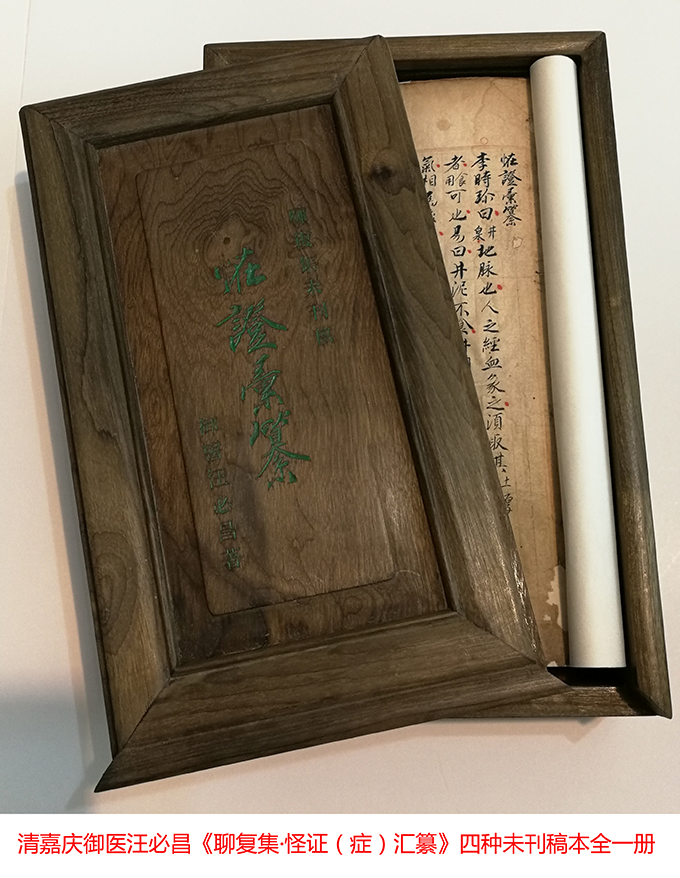 聊復集未刊稿
恠證彙纂
御醫汪必昌著
恠證彙纂
李時珍曰井泉地脉也人之經血象之須取其土厚
者用食可也易曰井泥不食井
氣相
清嘉庆御医汪必昌《聊复集·怪证（症）汇纂》四种未刊稿本全一册